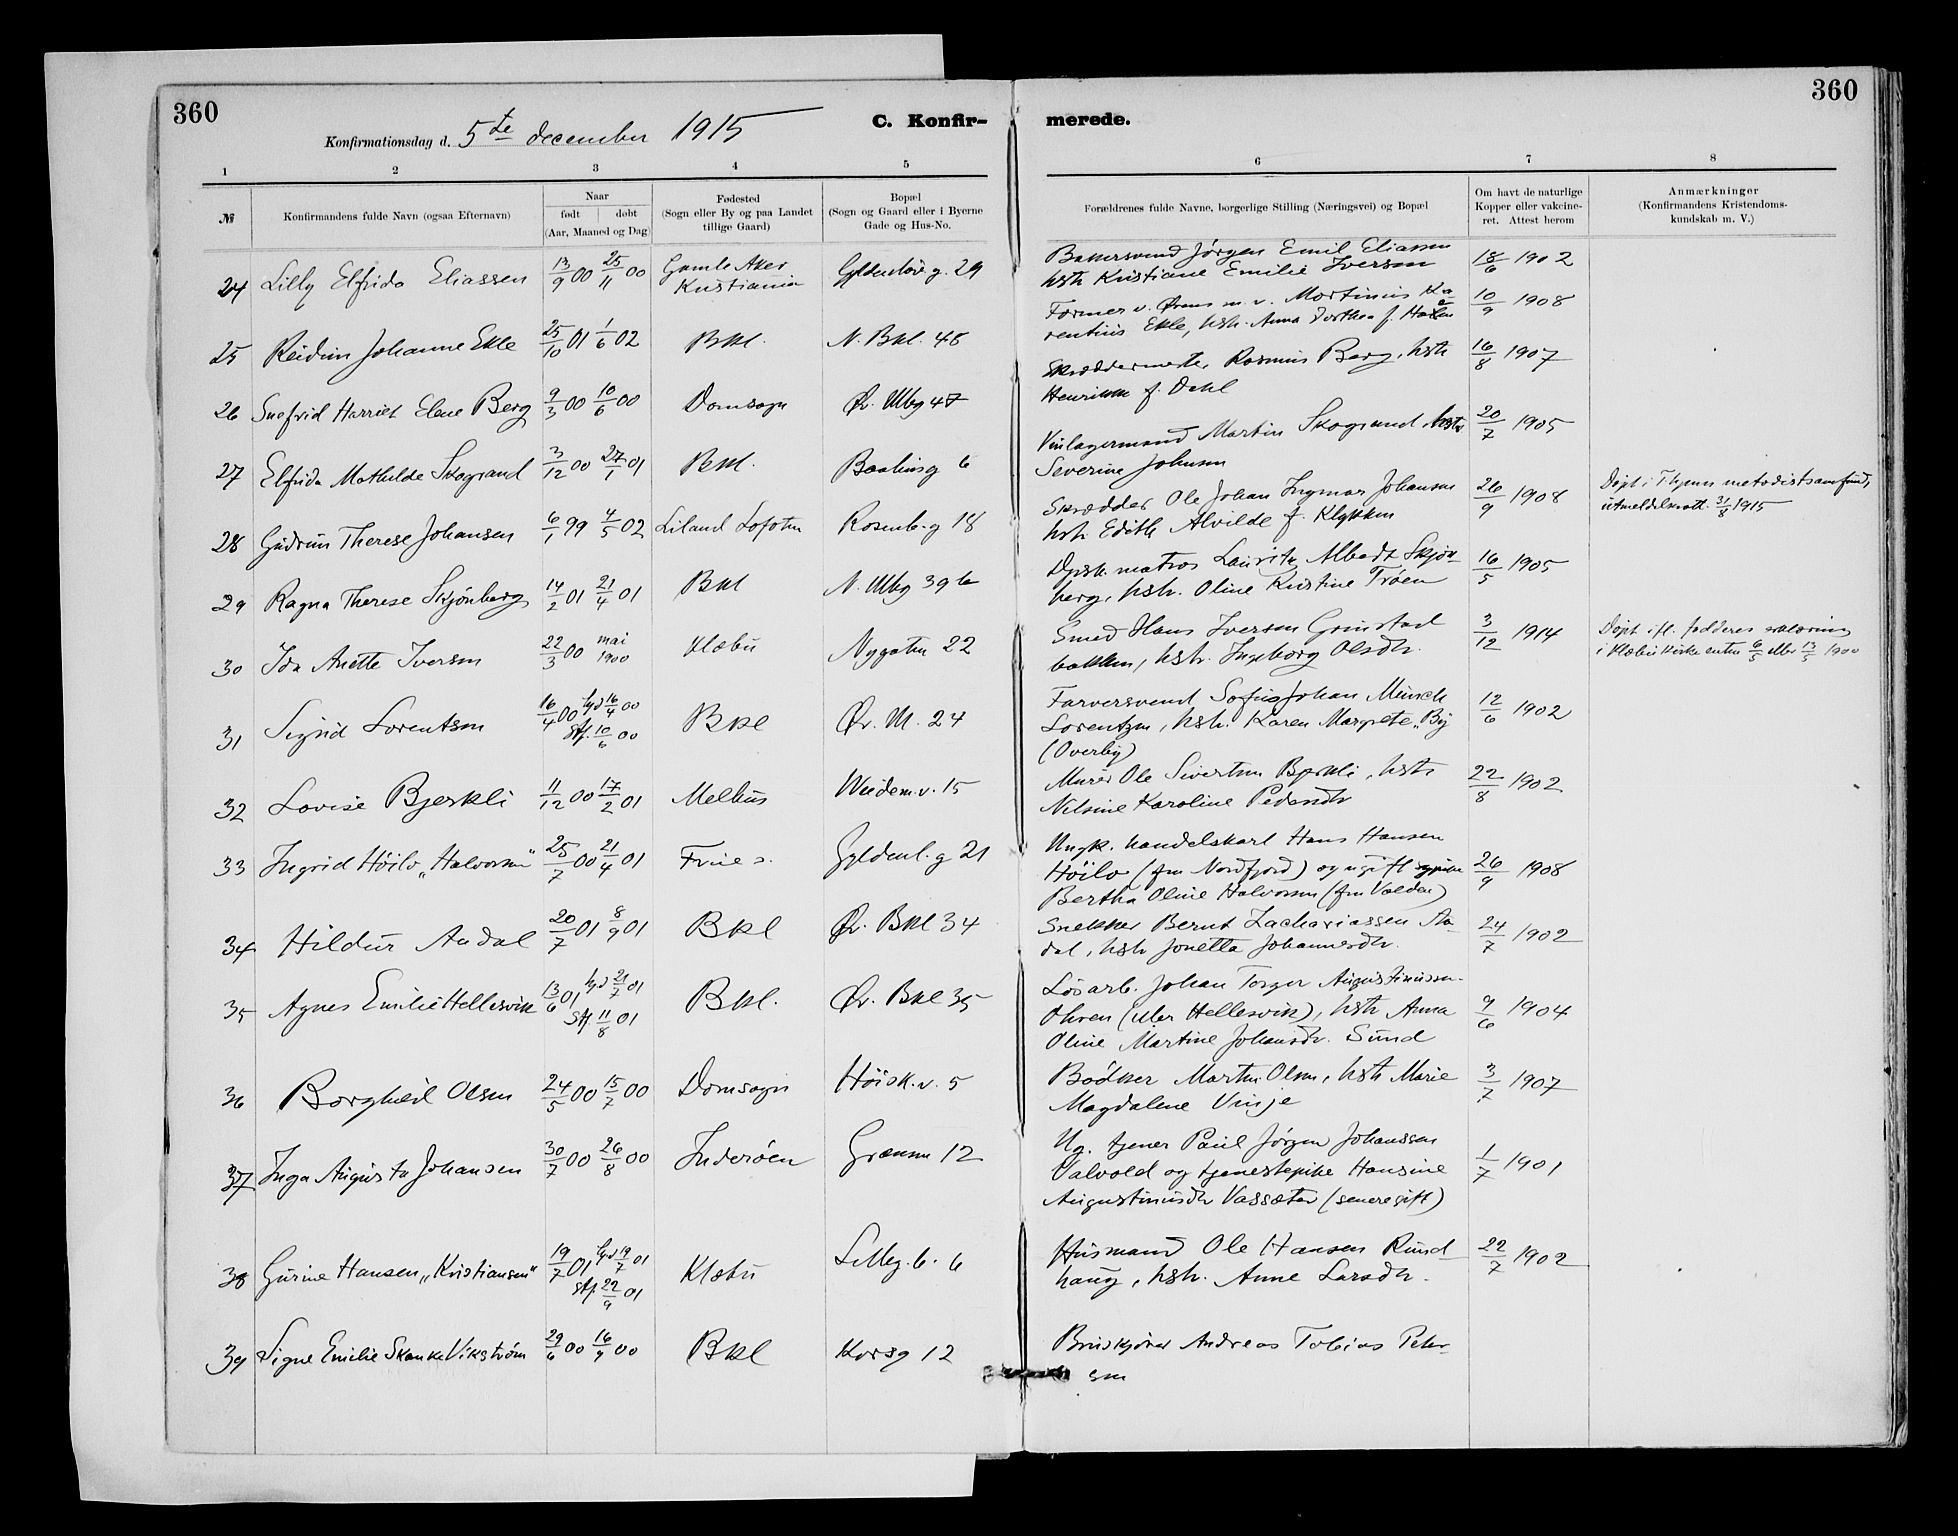 360
Konfirmationsdag d. 5te december 1915
C. Konfir-
merede.
360
1 2 3 4 5 6 7 8
№
Konfirmandens fulde Navn (ogsaa Efternavn)
Naar
født døbt
(Aar, Maaned og Dag)
Fødested
(Sogn eller By og paa Landet
tillige Gaard)
Bopæl
(Sogn og Gaard eller i Byerne
Gade og Hus-No.
Forældrenes fulde Navne, borgerlige Stilling (Næringsvei) og Bopæl
Om havt de naturlige
Kopper eller vakcine-
ret. Attest herom
Anmærkninger
(Konfirmandens Kristendoms-
kundskab m. V.)
24 Lilly Elfrida Eliassen 13/9 00 25/11 00 Gamle Aker
Kristiania
Gyldenløve g. 29
Bakersvend Jørgen Emil Eliassen
hstr Kristiane Emilie Iversen
18/6 1902
25 Reidun Johanne Ekle 25/10 01 1/6 02 Bkl. N. Bkl. 48
Former v. Ørens m. v. Martinius
Ekle, hstr. Anna Dorthea f.
10/9 1908
26 Snefrid Harriet Elene Berg 9/3 00 10/6 00 Domsogn Øv. Mbg 47
Skræddermester Rasmus Berg, hstr
Henrikke f. Dahl
16/8 1907
27 Elfrida Mathilde Skogrand 3/12 00 27/1 01 Bkl. Baklisg 6
Vinlagermand Martin Skogrand hstr
Severine Johnsen
20/7 1905
28 Gudrun Therese Johansen 6/1 99 4/5 02 Liland Lofoten Rosenb. g 18
Skrædder Ole Johan Ingmar Johansen
hstr. Edith Alvilde f. Klykken
26/9 1908
Døpt i Thjems metodistsamfund,
utmeldelsesatt. 31/8 1915
29 Ragna Therese Skjönberg 14/2 01 21/4 01 Bkl N. Mbg 39 b
Dpsk. matros Lauritz Albert Skjön-
berg, hstr. Oline Kristine Tröen
16/5 1905
30 Ida Anette Iversen 22/3 00 mai
1900
Klæbu Nygaten 22
Smed Hans Iversen Grimstad
bakken, hstr. Ingeborg Olsdtr.
3/12 1914
Døpt ifl. fadderes erklæring
i Klæbu kirke enten 6/5 eller 13/5 1900
31 Sigrid Lorentsen 16/4 00 hjd 16/4 00
stf. 10/6 00
Bkl Øv. M. 24
Farversvend Sofus Johan Meinich
Lorentzen, hstr. Karen Margrete "By
(Overby)
12/6 1902
32 Lovise Bjerkli 11/12 00 17/2 01 Melhus Weidem. v. 15
Murer Ole Sivertsen Bjerkli, hstr
Nilsine Karoline Pedersdtr
22/8 1902
33 Ingrid Höilo "Halvorsen" 25/7 00 21/4 01 Frue s. Gyldenl. g 21
Ungk. handelskarl Hans Hansen
Höilo (fra Nordfjord) og ugift
Bertha Oline Halvorsen (fra Valdin)
26/9 1908
34 Hildur Aadal 20/7 01 8/9 01 Bkl Øv. Bkl 34
Snekker Bernt Zachariassen Aa-
dal, hstr Jonetta Johannesdtr.
24/7 1902
35 Agnes Emilie Hellesvik 13/6 01 hjd 21/7 01
stf. 11/8 01
Bkl. Øv. Bkl 35
Lösarb. Johan Torger Augustinussen
Ohren (eller Hellesvik), hstr Anna
Oline Martine Johansdtr. Sund
9/6 1904
36 Borghild Olsen 24/5 00 15/7 00 Domsogn Höisk. v. 5
Bödker Martin Olsen, hstr Marie
Magdalene Vinje
3/7 1907
37 Inga Augusta Johansen 30/7 00 26/8 00 Inderöen Grænsen 12
Ug. tjener Paul Jörgen Johanssen
Valvold og tjenestepike Hansine
Augustinusdtr Vassæter (senere gift)
1/7 1901
38 Gurine Hansen "Kristiansen" 19/7 01 hjd 19/7 01
stf. 22/9 01
Klæbu Lilleg. b. 6
Husmand Ole Hansen Rund-
haug, hstr. Anne Larsdtr.
22/7 1902
39 Signe Emilie Skanke Vikström 29/6 00 16/9 00 Bkl Korsg 12
Andreas Tobias Peter-
sen